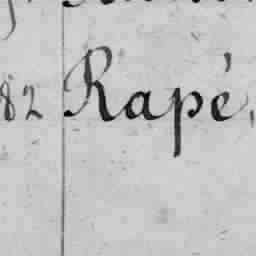 82 Rapé,